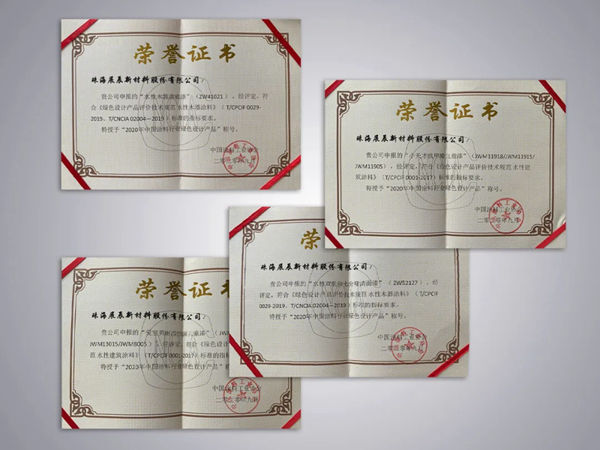 荣誉证书
珠海展辰新材料股份有限公司：
贵公司申报的“水性木器清底漆”（ZW41021），经评定，符
合《绿色设计产品评价技术规范 水性木器涂料》（T/CPCIF 0029-
2019、T/CNCIA 02004—2019）标准的指标要求。
特授予“2020年中国涂料行业绿色设计产品”称号。
中国涂料工业协会
荣誉证书
珠海展辰新材料股份有限公司：
（JWM11918/JWM11915/
JWM11905），经评定，符合《绿色设计产品评价技术规范 水性建
筑涂料》（T/CPCIF 0001-2017）标准的指标要求。
特授予“2020年中国涂料行业绿色设计产品”称号。
中国涂料工业协会
荣誉证书
珠海展辰新材料股份有限公司：
贵公司申报的“水性双组份七分哑清面漆”（ZW52127），经
评定，符合《绿色设计产品评价技术规范 水性木器涂料》（T/CPCIF
0029-2019、T/CNCIA 02004—2019）标准的指标要求。
特授予“2020年中国涂料行业绿色设计产品”称号。
中国涂料工业协会
荣誉证书
珠海展辰新材料股份有限公司：
贵公司申报的
JWM13015/JWM8005），经评定，符合《绿色设计产品
范 水性建筑涂料》（T/CPCIF 0001-2017）标准的指标
特授予“2020年中国涂料行业绿色设计产品”称号。
中国涂料工业协会